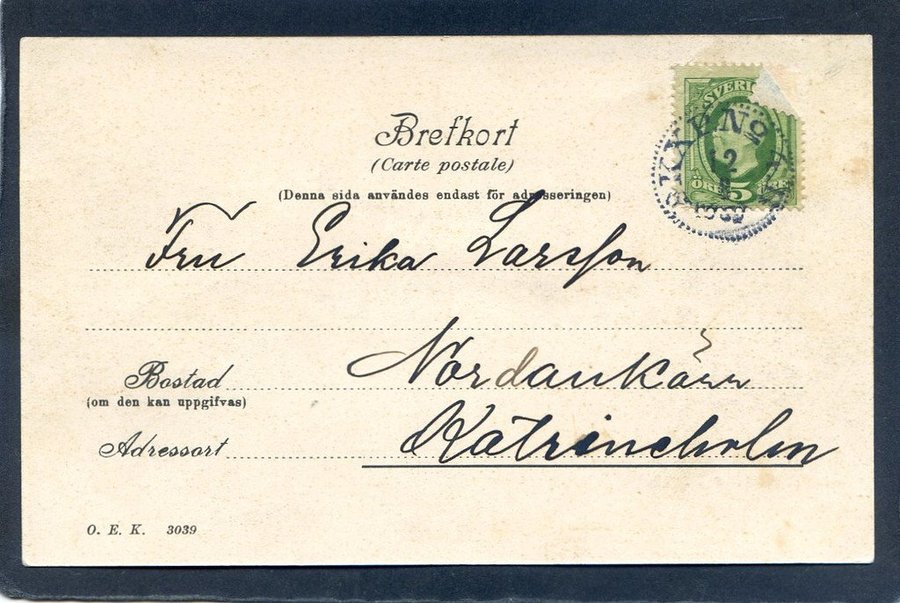 Brefkort
(Carte postale)
(Denna sida användes endast för adresseringen)
SVERI
ÖRE 5
Fru Erika Larsson
Nordankärr
Bostad
(om den kan uppgifvas)
Katrineholm
Adressort
O. E. K. 3039